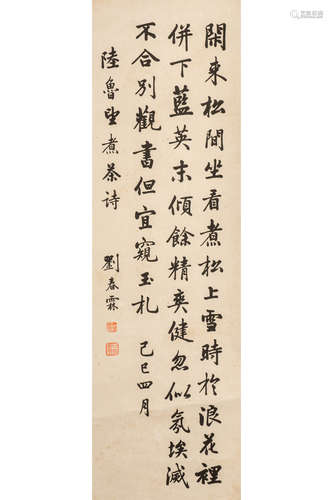 閑來松間坐看煮松上雪時於浪花裡
併下藍英末傾餘精爽健忽似氛埃滅
不合別觀書但宜窺玉札 己巳四月
陸魯望煮茶詩
劉春霖